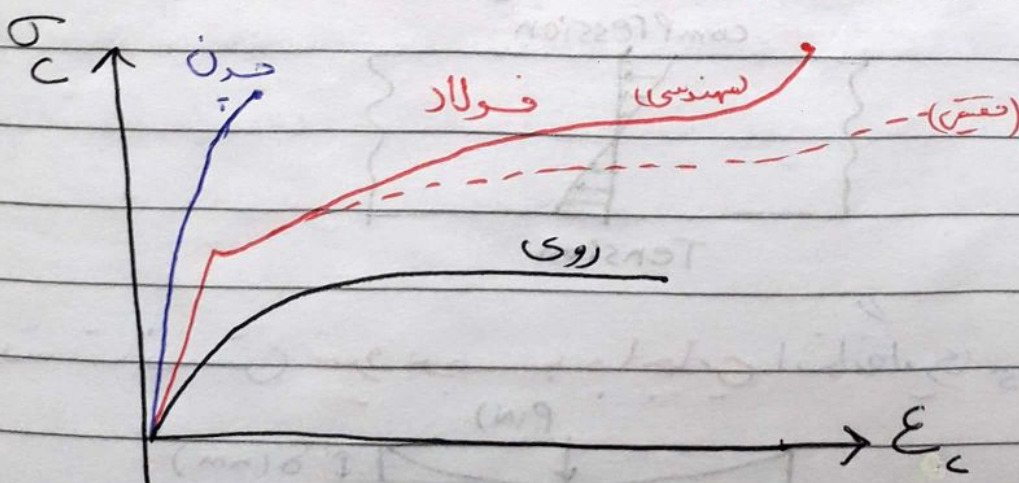 σc
چدن
فولاد
(مهندسی)
(حقیقی)
روی
εc